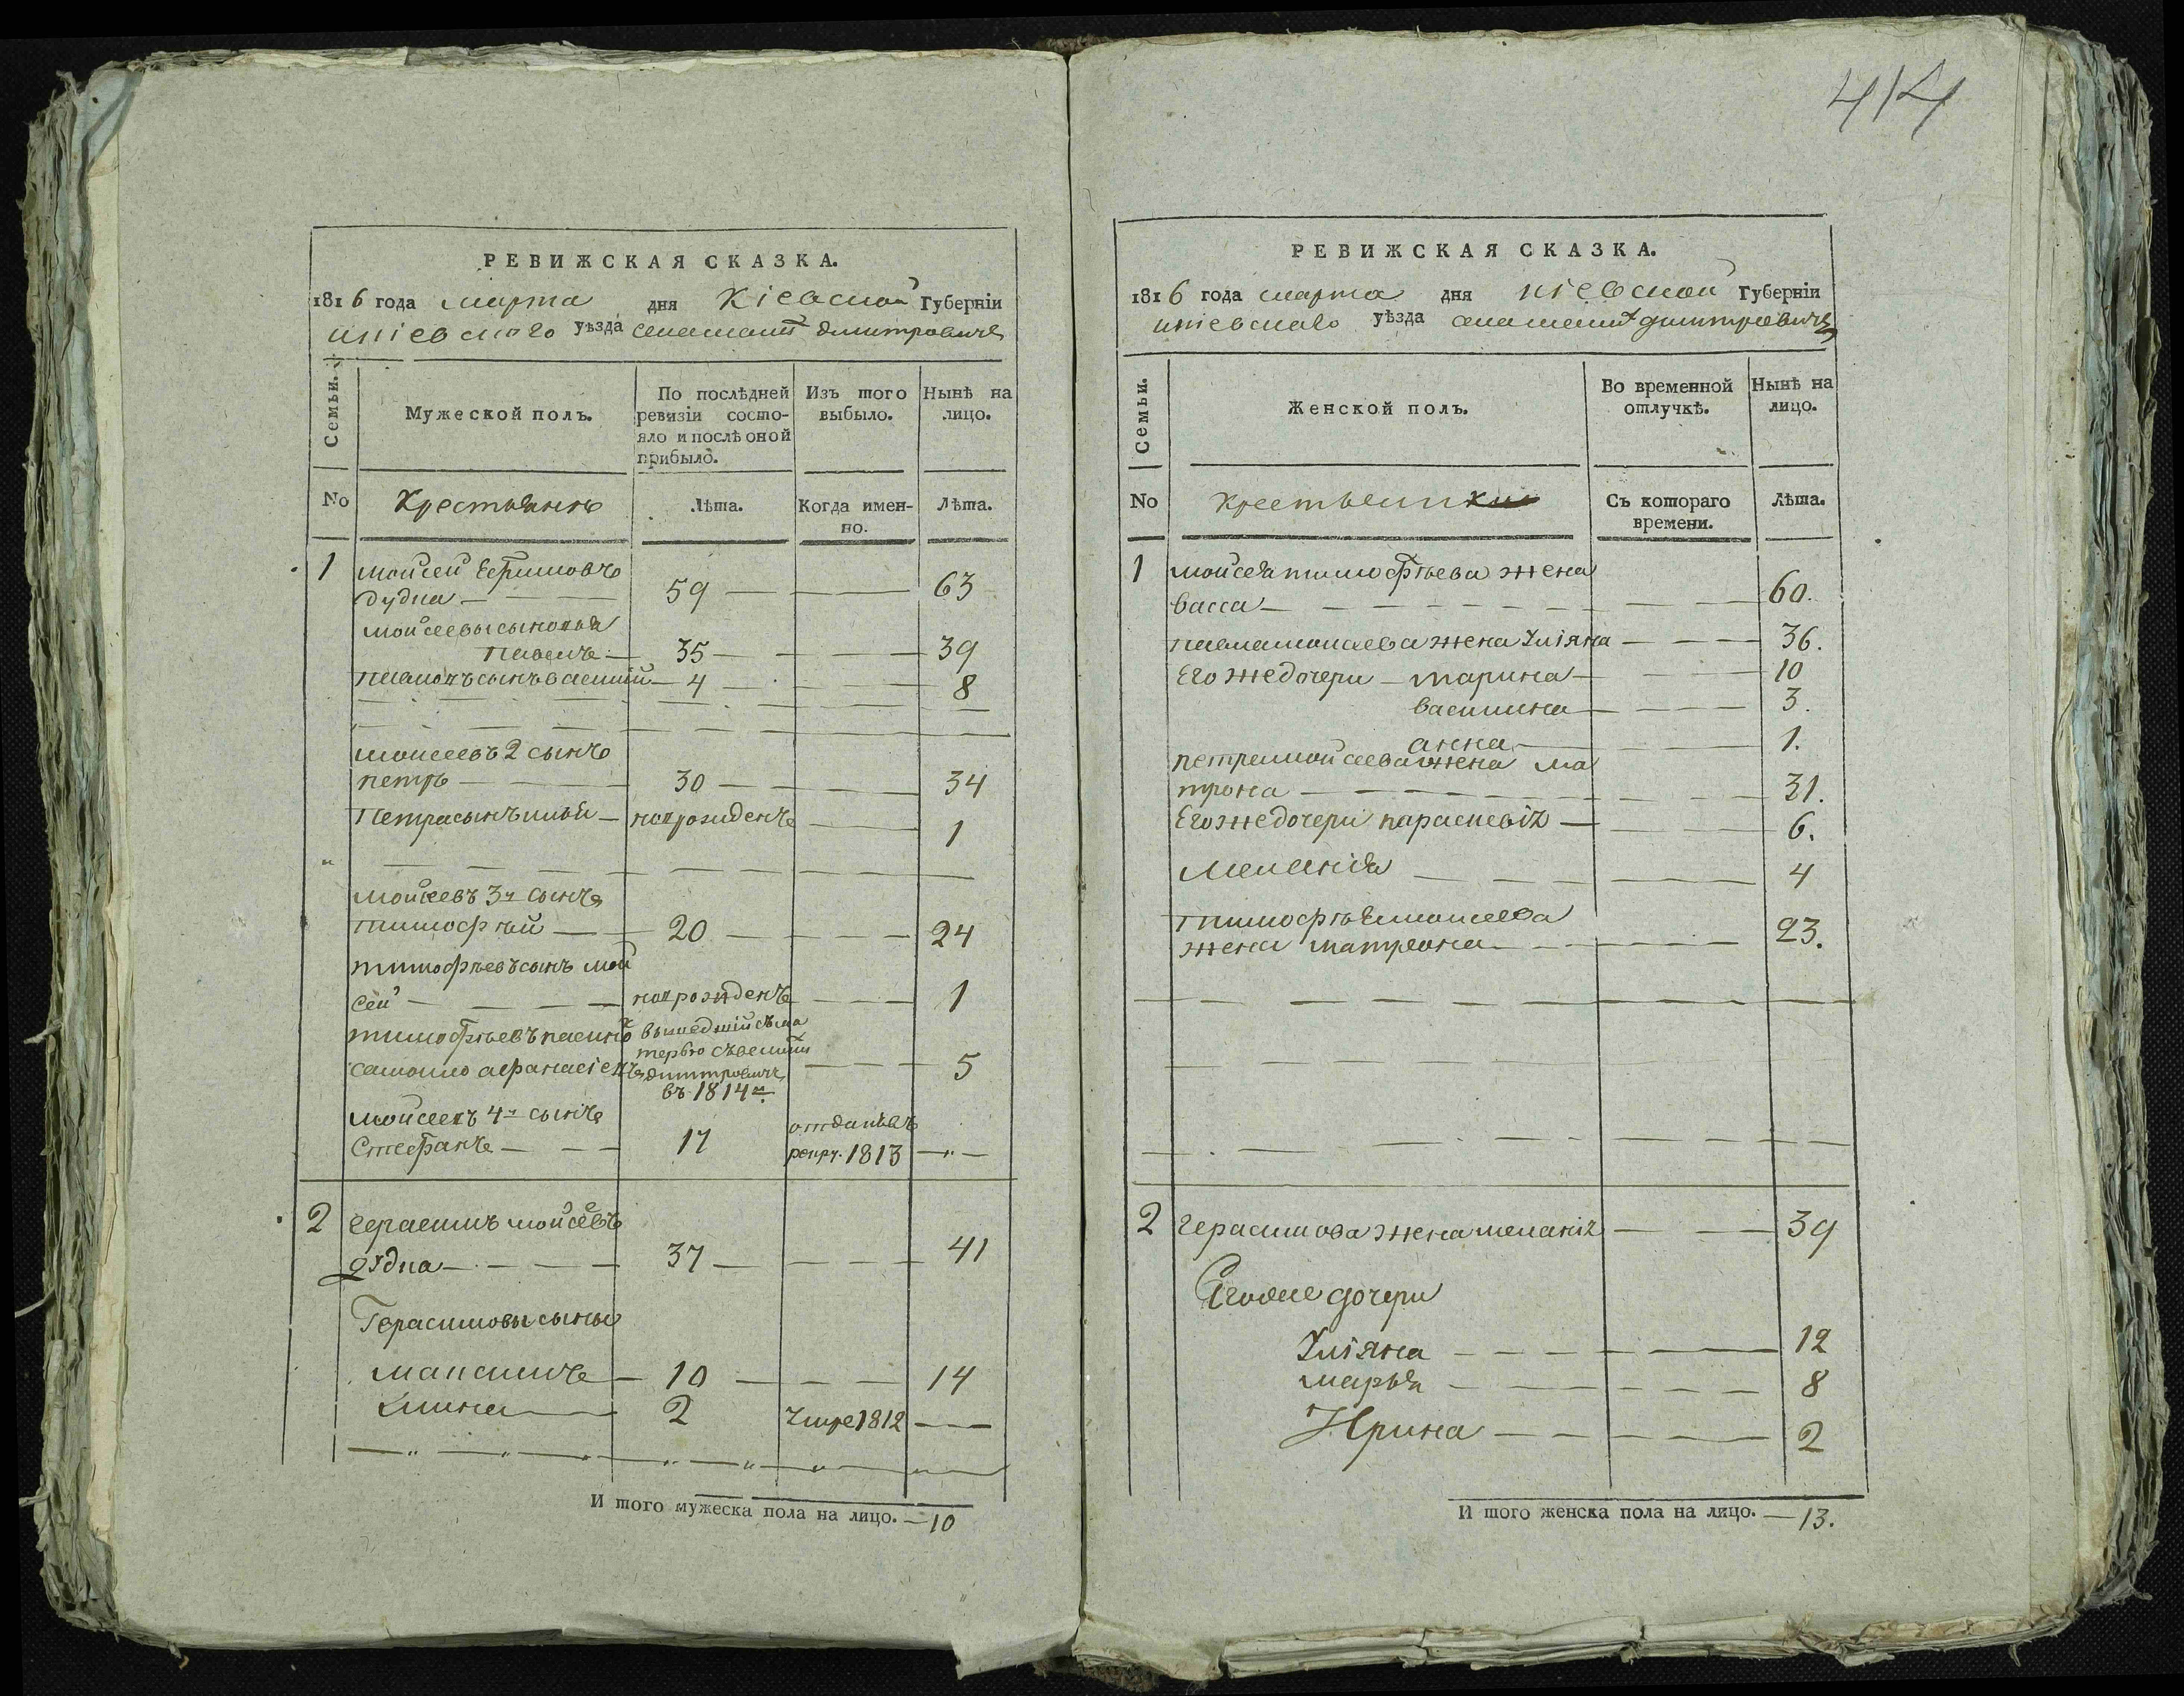 414
РЕВИЖСКАЯ СКАЗКА.
1816 года марта дня Кіевской Губерніи
кіевского уѣзда дмитровичъ
Семьи.
Мужеской полъ.
По послѣдней ревизіи состояло и послѣ оной прибыло.
Изъ того выбыло.
Нынѣ на лицо.
No Крестьянъ Лѣта. Когда именно. Лѣта.
1 Мойсей Ефимовъ
дудка 59 63
Мойсеевы сыновья
павелъ 35 39
павловъ сынъ василий 4 8
Мойсеевъ 2 сынъ
петръ 30 34
Петра сынъ илья новрожденъ 1
Мойсеевъ 3й сынъ
тимофѣй 20 24
тимофѣевъ сынъ мой
сей новрожденъ 1
тимофѣевъ пасынъ вышедшій съ ма
афанасіенъ терью дмитровичъ 5
въ 1814м
Мойсеевъ 4й сынъ отданъ въ
Стефанъ 17 рекру. 1813
2 Герасимъ мойсеевъ
дудка 37 41
Герасимовы сыны
максимъ 10 14
2 умре 1812
И того мужеска пола на лицо. 10
РЕВИЖСКАЯ СКАЗКА.
1816 года марта дня кіевской Губерніи
кіевскаго уѣзда дмитровичъ
Семьи.
Женской полъ.
Во временной отлучкѣ.
Нынѣ на лицо.
No Съ котораго времени. Лѣта.
1 Мойсея тимофѣева жена
васса 60.
павла моисеева жена Уліяна 36.
Его же дочери марина 10
василина 3.
анна 1.
петра мойсеева жена ма
трона 31.
Его же дочери параскевія 6.
Меланія 4
Тимофѣя моисеева
жена матрона 23.
2 Герасимова жена меланія 39
Его же дочери
Уліяна 12
марья 8
Ирина 2
И того женска пола на лицо. 13.